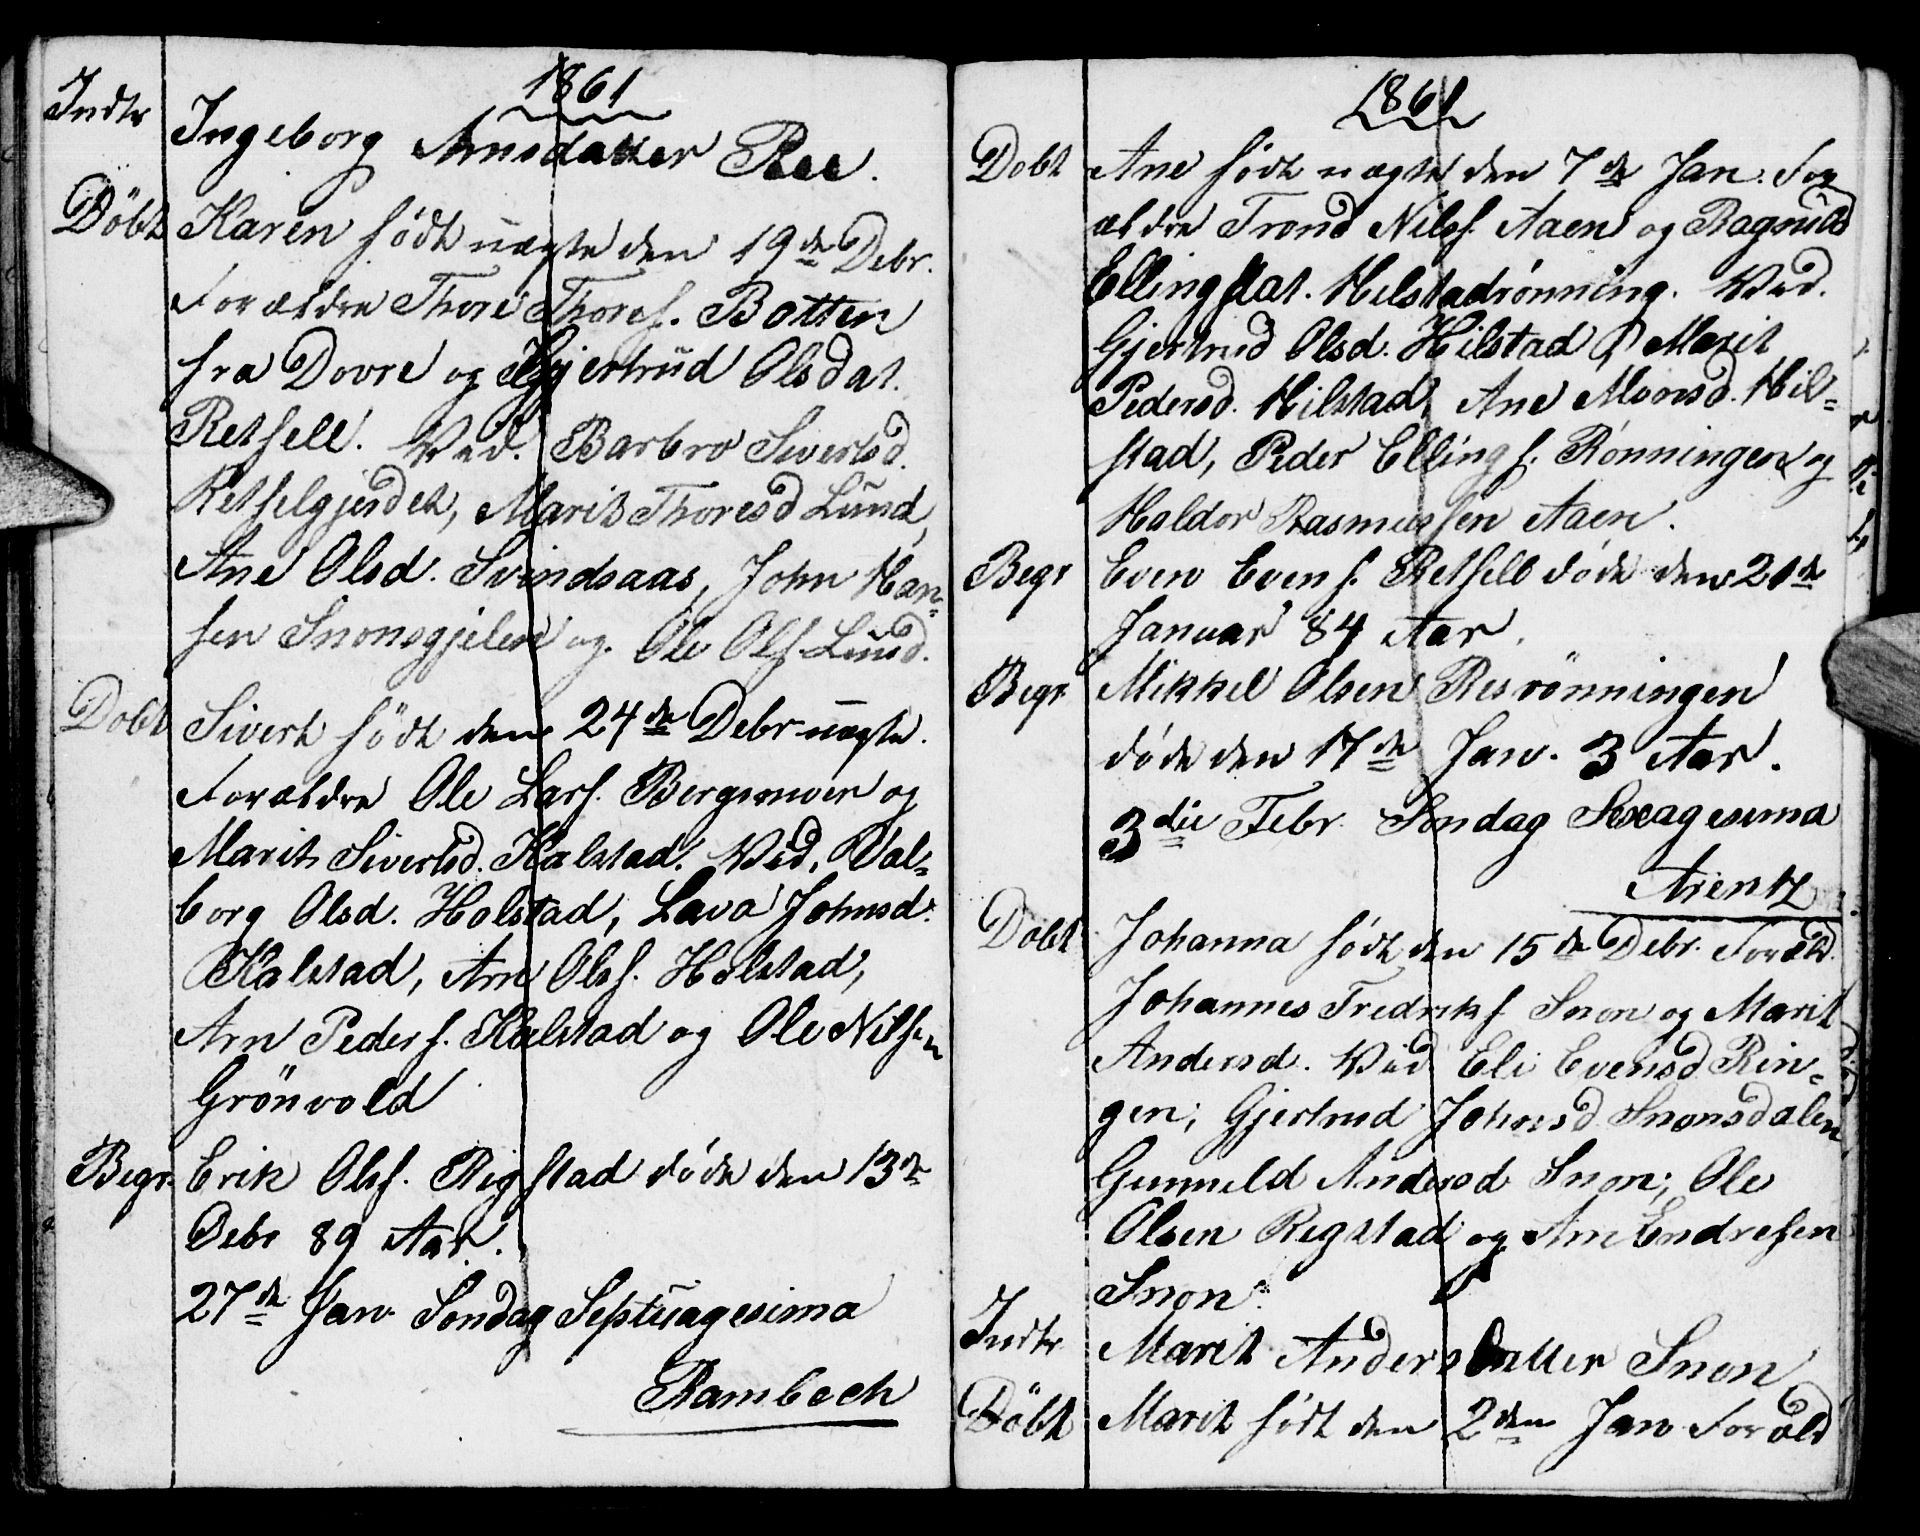 1861
Indtr Ingeborg Arnsdatter Ree.
Döbt Karen födt uægte den 19de Debr.
Forældre Thore Thoresf. Botten
fra Dovre og Gjertrud Olsdat.
Retfell. Vid. Barbro Sivertsd.
Retfelgjerdet, Marit Thoresd Lund,
Ane Olsd. Svindsaas, John Han-
sen Snonsgjelen og Ole Olsf. Lund.
Döbt Sivert födt den 24de Debr uægte.
Forældre Ole Larsf. Bergsmoen og
Marit Sivertsd. Halstad. Vid. Val-
borg Olsd. Holstad, Lava Johnsd.
Kalstad, Arn Olsf. Holstad,
Arn Pedersf. Kalstad og Ole Nilsen
Grönvold
Begr. Erik Olsf. Rigstad döde den 13de
Debr 89 Aar.
27de Jan Söndag Septuagesima
Rambech
1861
Döbt Ane födt uægte den 7de Jan. For
ældre Trond Nilsf. Aaen og Ragnild
Ellingsdat. Hilstadrönning. Vid.
Gjertrud Olsd. Hilstad, Marit
Pedersd. Hilstad, Ane Monsd. Hil-
stad, Peder Ellingsf. Rönningen og
Haldor Rasmussen Aaen.
Begr Even Evensf. Retfell döde den 21de
Januar 84 Aar.
Begr. Mikkel Olsen Resrönningen
döde den 17de Jan. 3 Aar.
3die Febr. Söndag Sexagesima
Arentz
Döbt Johanna födt den 15de Debr. Foræld.
Johannes Fredriksf. Snon og Marit
Andersd. Vid Eli Evensd Rin-
gen, Gjertrud Johnsd Snonsdalen
Gunnild Andersd Snon, Ole
Olsen Regstad og Arn Endresen
Snon.
Indtr Marit Andersdatter Snon
Döbt Marit födt den 2den Jan. Foræld